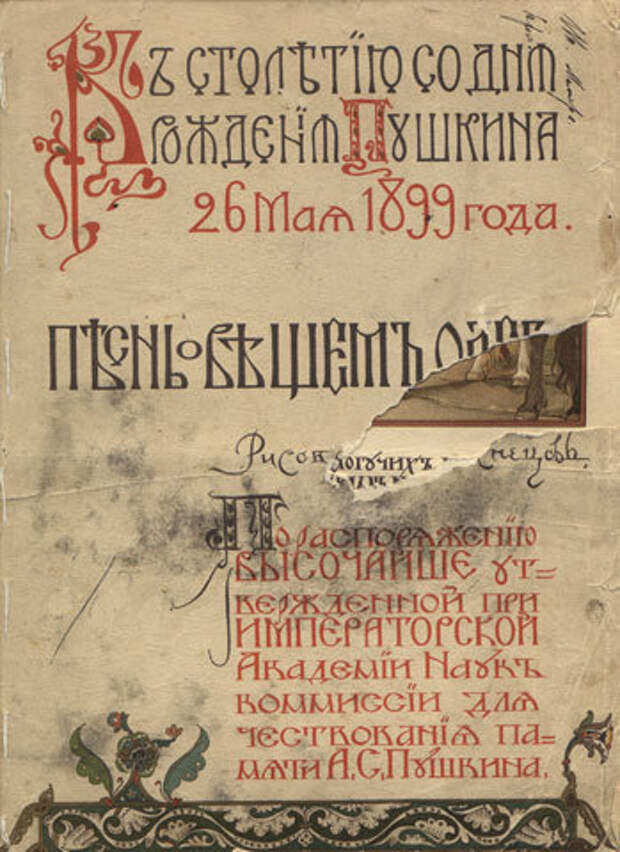 Къ столѣтію со дня
рожденія Пушкина
26 Мая 1899 года.
Пѣснь о вѣщемъ
Рисов могучихъ снецовъ.
По распоряженію
ВЫСОЧАЙШЕ ут=
вержденной при
ИМПЕРАТОРСКОЙ
Академіи Наукъ
коммиссіи для
чествованія па=
мяти А.С.Пушкина.